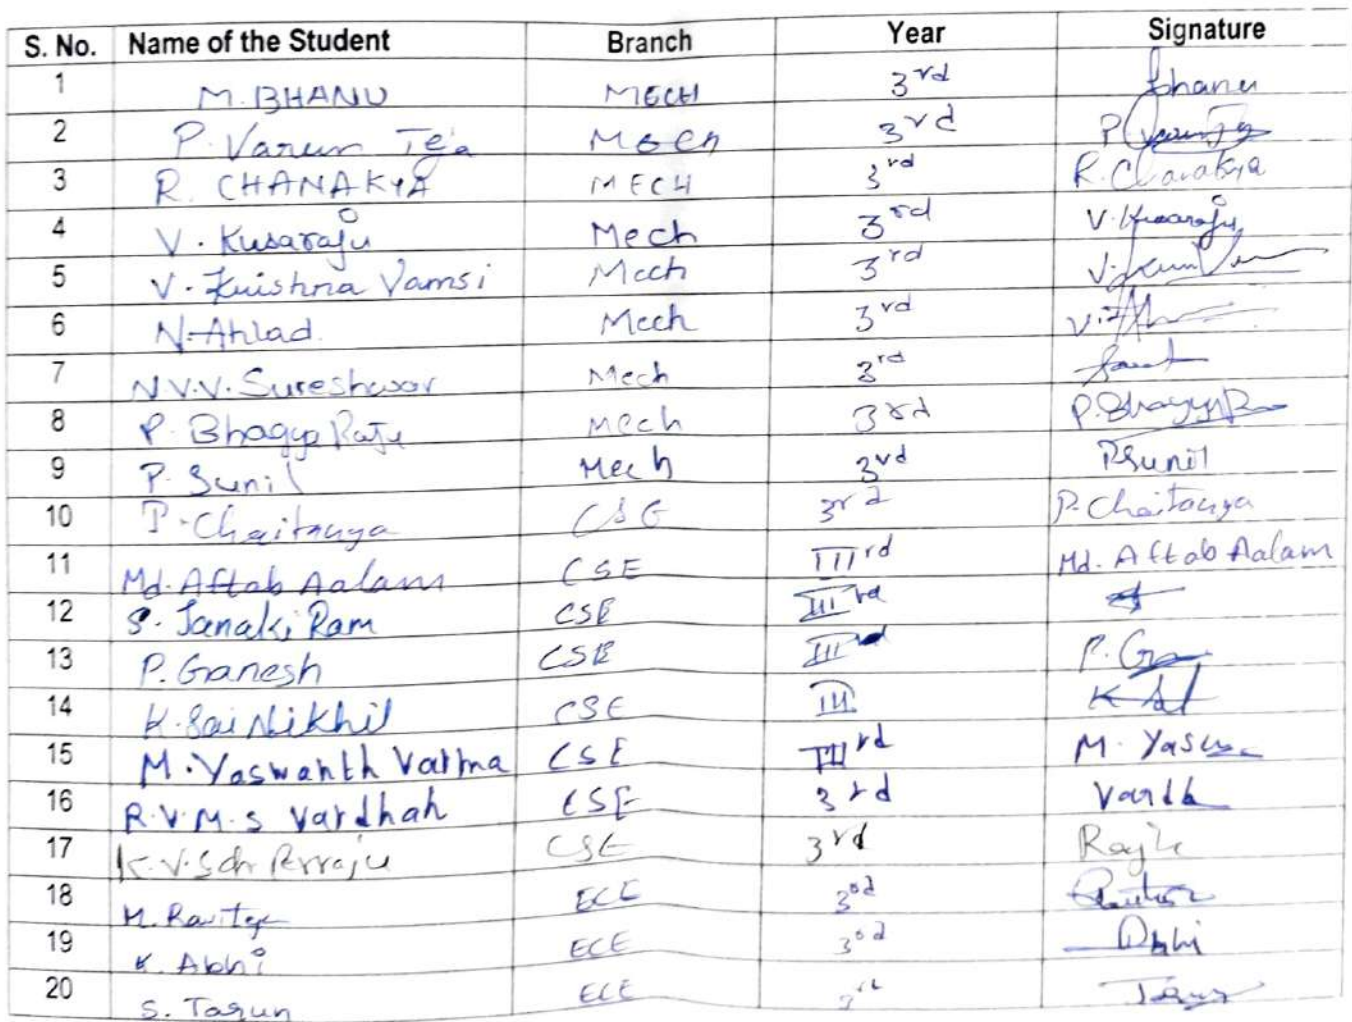 S. No. Name of the Student Branch Year Signature
1 M. BHANU MECH 3rd bhanu
2 P. Varun Teja Mech 3rd P
3 R. CHANAKYA MECH 3rd R. Chanakya
4 V. Kusaraju Mech 3rd V. Kusaraju
5 V. Krishna Vamsi Mech 3rd
6 N. Ahlad. Mech 3rd
7 N.V.V. Sureshwar Mech 3rd
8 P. Bhagya Raju Mech 3rd
9 P. Sunil Mech 3rd P.Sunil
10 P. Chaitanya CSE 3rd P. Chaitanya
11 Md. Aftab Aalam CSE IIIrd Md. Aftab Aalam
12 S. Janaki Ram CSE IIIrd
13 P. Ganesh CSE IIIrd
14 K. Sai Nikhil CSE III
15 M. Yaswanth Varma CSE IIIrd
16 R.V.M.S Vardhan CSE 3rd
17 CSE 3rd
18 M. Ravitej ECE 3rd
19 K. Abhi ECE 3rd Abhi
20 S. Tarun ECE